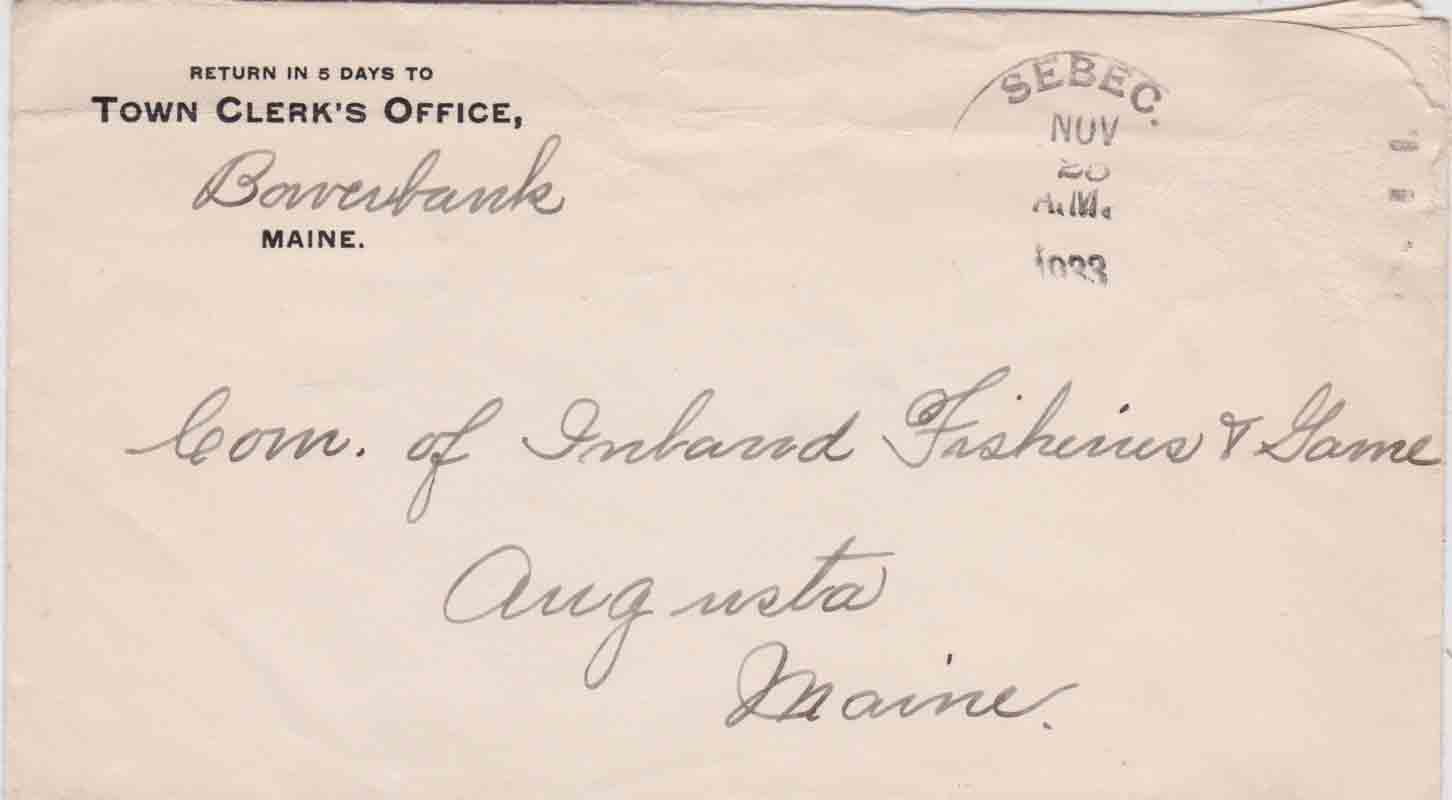 RETURN IN 5 DAYS TO
TOWN CLERK'S OFFICE,
Bowerbank
MAINE.
SEBEC.
NOV
A.M.
1933
Com. of Inland Fisheries & Game
Augusta
Maine.